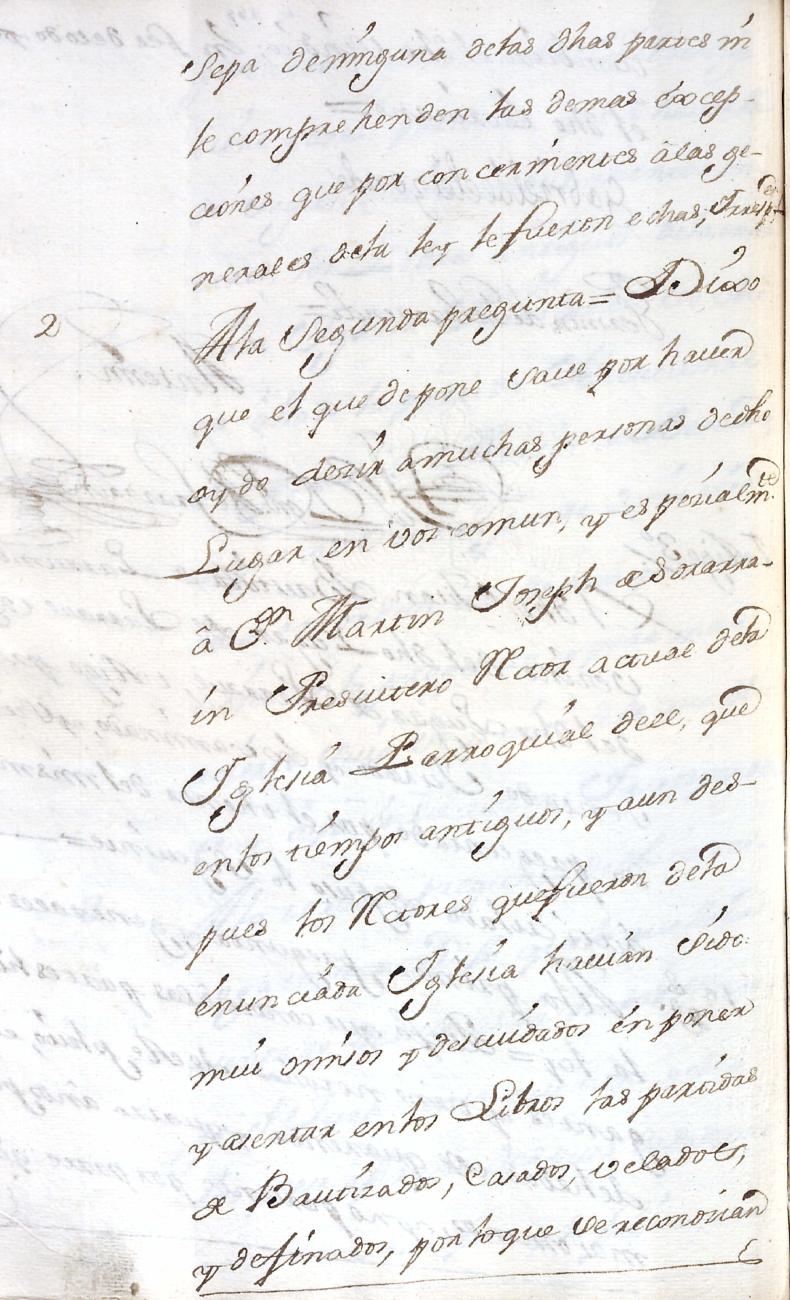 Sepa de ninguna de las dhas partes ni
le comprehenden las demas excep-
ciones que por concernientes â las ge-
nerales de la ley le fueron echas, Y resp.de
2 A la Segunda pregunta = Dixo
que el que depone save por haver
oydo dezir a muchas personas de dho
Lugar en voz comun, y espezialmte
â Dn Martin Joseph de Sorarra-
in Presvitero Rector actual de la
Iglesia Parroquial de el, que
en los tiempos antiguos, y aun des-
pues los Rectores que fueron de la
enunciada Iglesia havian Sido
mui omisos y descuidados en poner
y asentar en los Libros las partidas
de Bautizados, Casados, velados,
y de finados, por lo que se reconozian